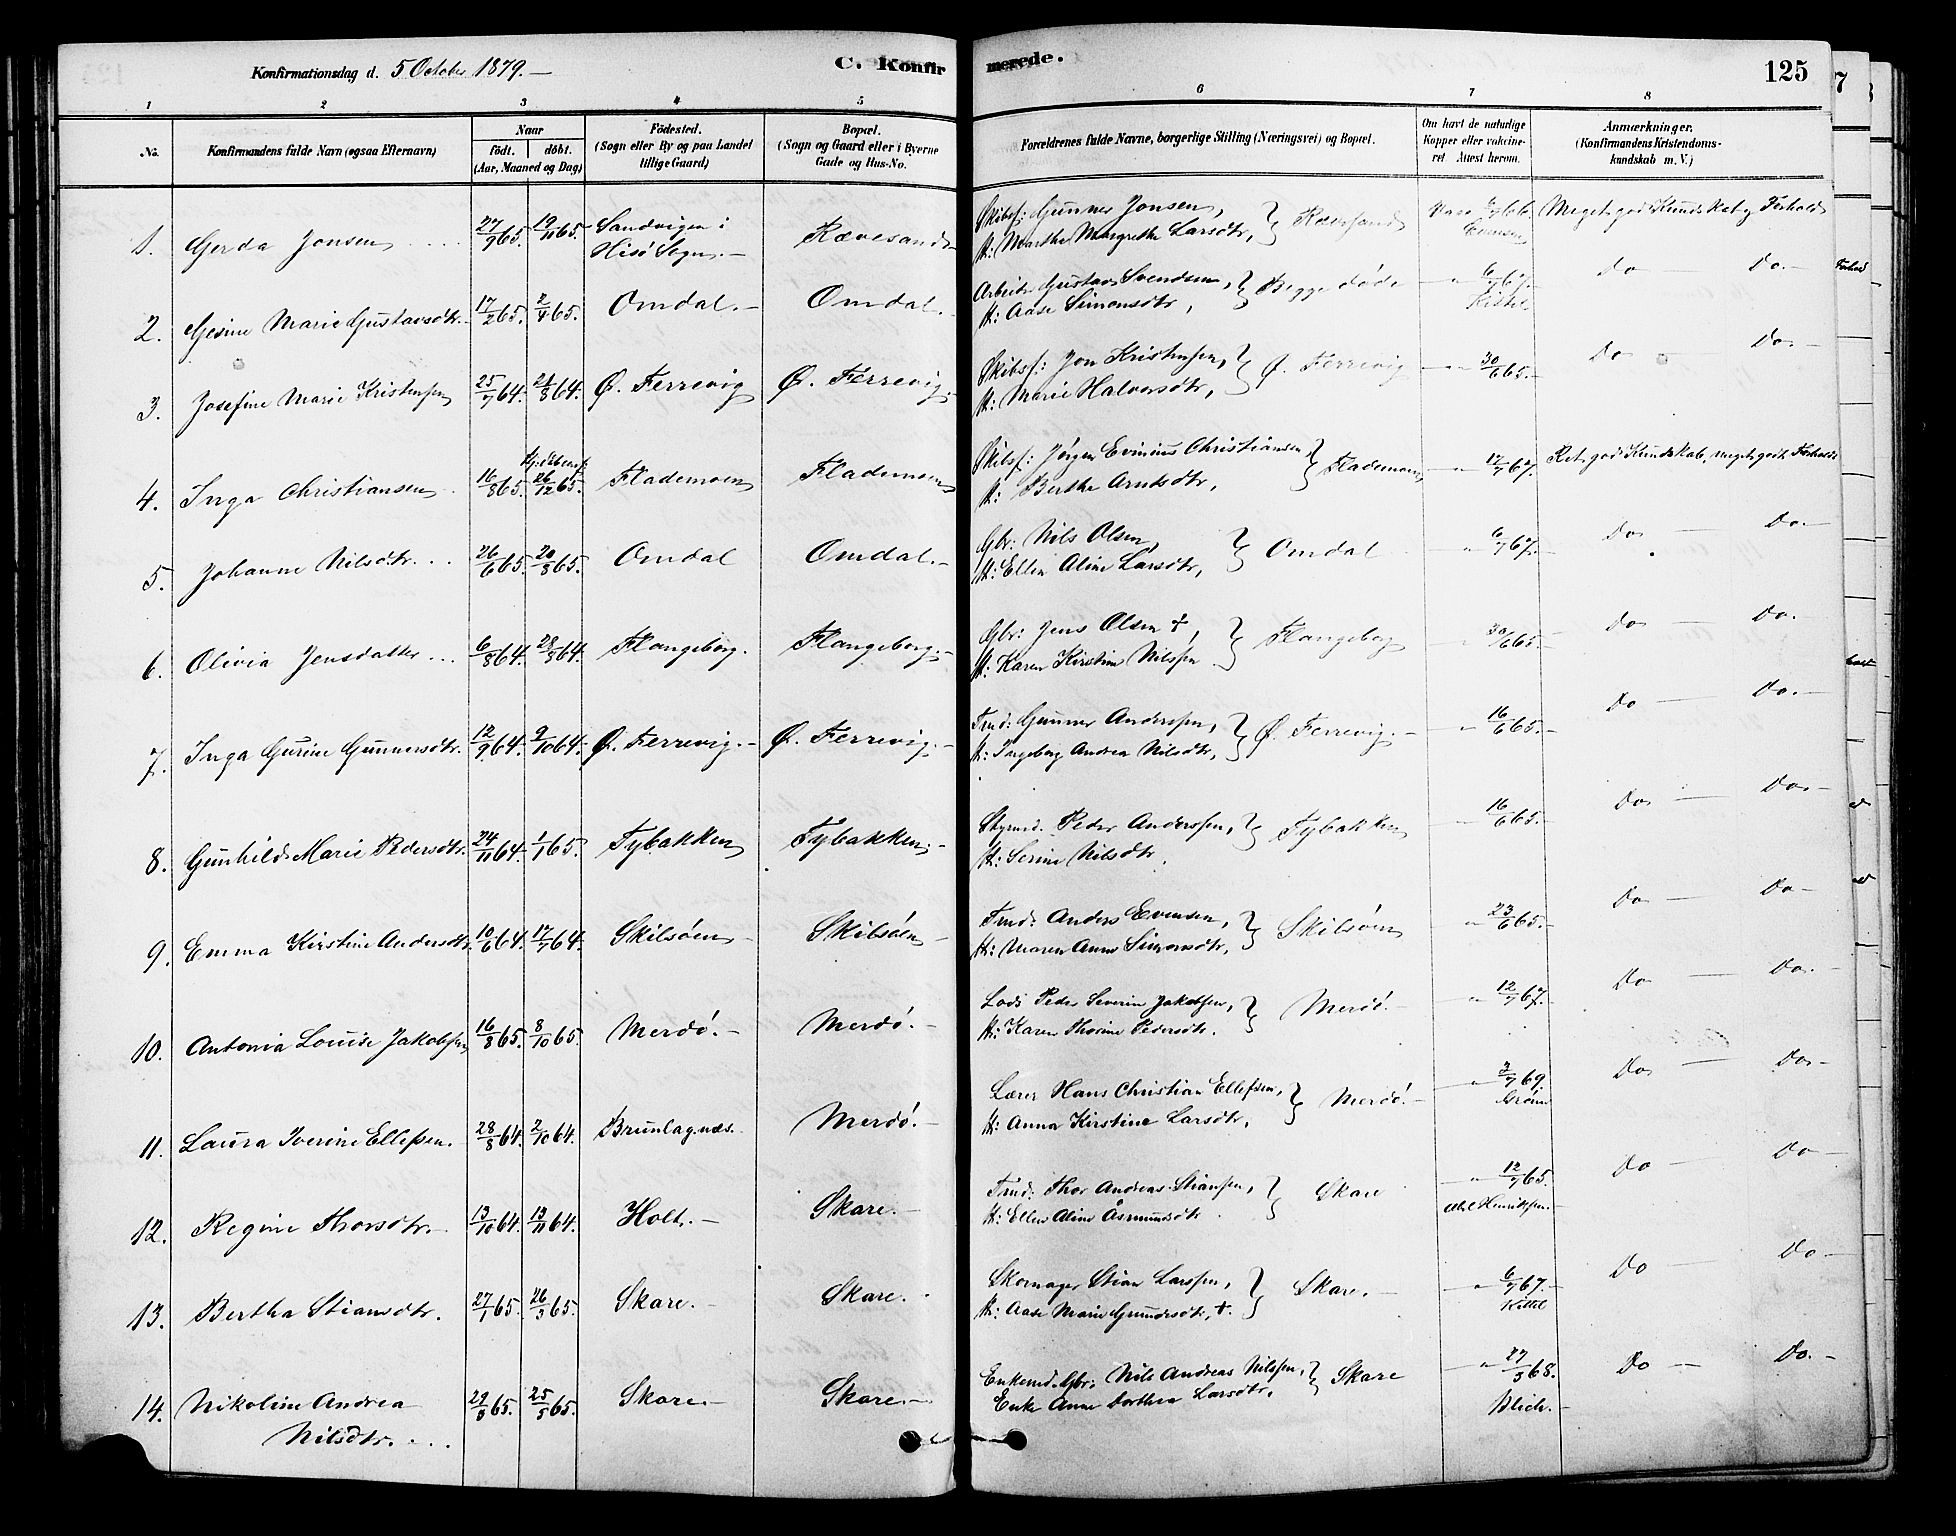 Konfirmationsdag d. 5 October 1879.—
C. Konfir
merede.
125
1 2 3 4 5 6 7 8
No.
Konfirmandens fulde Navn (ogsaa Efternavn)
Naar
født. døbt.
(Aar, Maaned og Dag)
Fødested.
(Sogn eller By og paa Landet
tillige Gaard)
Bopæl.
(Sogn og Gaard eller i Byerne
Gade og Hus-No.
Forældrenes fulde Navne, borgerlige Stilling (Næringsvei) og Bopæl.
Om havt de naturlige
Kopper eller vakcine-
ret Attest herom.
Anmærkninger.
(Konfirmandens Kristendoms-
kundskab m. V.)
1. Gerda Jonsen 27/9 65. 19/11 65. Sandvigen i Hisø Sogn.— Rævesand
Skibsf: Gunner Jonsen,
H: Marthe Margrethe Larsdtr, } Rævesand 66. Evensen Meget god Kundskab og Forhold
2. Gesine Marie Gustavsdtr. 17/2 65. 2/4 65. Omdal.— Omdal.—
Arbeids Gustav Svendsen,
H: Aase Simonsdtr, } Begge døde — " 6/7 67. Kittel. Do — Do.—
3. Josefine Marie Kristensen 25/7 64. 21/8 64. Ø. Ferrevig Ø. Ferrevig.
Skibsf: Jon Kristensen,
H: Marie Halvorsdtr, } Ø. Ferrevig — " 30/6 65.— Do Do.—
4. Inga Christiansen 16/8 65. 26/12 65. Flademoen Flademoen
Skibsf: Jörgen Evinius Christiansen
H: Berthe Arntsdtr, } Flademoen — " 17/7 67. Ret god Kundskab, meget godt Forhold
5. Johanne Nilsdtr. 26/6 65. 20/8 65. Omdal Omdal.—
Gbr: Nils Olsen,
H: Ellen Aline Larsdtr, } Omdal " 6/7 67.— Do — Do.—
6. Olivia Jensdatter 6/8 64. 28/8 64. Flangeborg. Flangeborg.—
Gbr: Jens Olsen †,
H: Karen Kirstine Nilssen } Flangeborg " 30/6 65.— Do — Do.
7. Inga Gurine Gunnersdtr. 12/9 64. 9/10 64. Ø. Ferrevig.— Ø. Ferrevig.—
Tmd: Gunner Anderssen,
H: Ingeborg Andrea Nilsdtr, } Ø. Ferrevig.— " 16/6 65.— Do — Do.—
8. Gunhild Marie Pedersdtr. 24/11 64. 1/1 65. Tybakken Tybakken.—
Styrmd. Peder Anderssen,
H: Serine Nilsdtr. } Tybakken " 16/6 65. Do — Do.—
9. Emma Kirstine Andersdtr. 10/6 64. 17/7 64. Skilsøen Skilsøen
Tmd: Anders Evensen,
H: Maren Anne Simonsdtr, } Skilsøen " 23/6 65.— Do — Do—
10. Antonia Louise Jakobsen 16/8 65. 8/10 65. Merdö.— Merdö.—
Lods Peder Severin Jakobsen,
H: Karen Thorine Pedersdtr. } Merdö.— " 12/7 67.— Do — Do.—
11. Laura Iverine Ellefsen. 28/8 64. 2/10 64. Brunlagnæs.— Merdö.—
Lærer Hans Christian Ellefsen,
H: Anna Kirstine Larsdtr, } Merdö.— " 3/7 69. Do — Do—
12. Regine Thorsdtr. 13/10 64. 13/11 64. Holt.— Skare.—
Tmd: Thor Andreas Stiansen,
H: Ellen Aline Åsmundsdtr } Skare " 12/7 65. Henriksen.— Do — Do—
13. Bertha Stiansdtr. 27/1 65. 26/3 65. Skare.— Skare.
Skomager Stian Larssen,
H: Aase Marie Gundersdtr, †. } Skare.— " 6/7 67.— Kittel Do Do—
14. Nikoline Andrea
Nilsdtr. 25/5 65. Skare.— Skare.—
Enkemd. Gbr: Nils Andreas Nilssen,
Enke Anne Dorthea Larsdtr. } Skare — " 68. Blich.— Do — Do.—